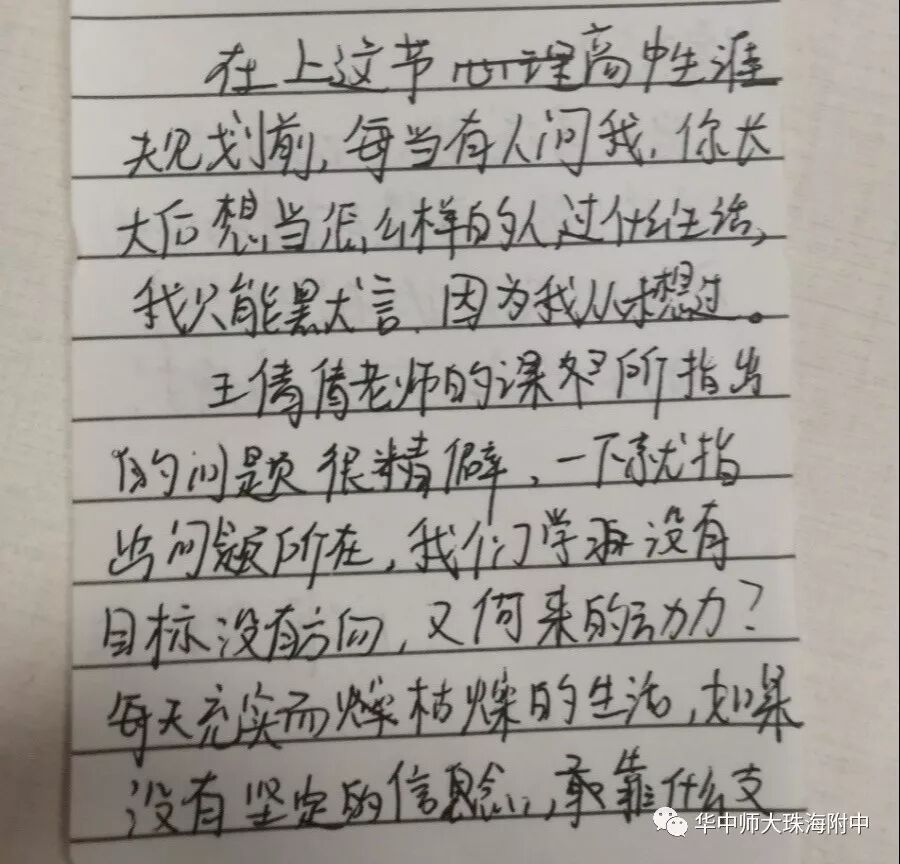 在上这节高中生涯
规划前，每当有人问我，你长
大后想当怎么样的人，过什么生活，
我只能默言，因为我从未想过。
王倩倩老师的课 所指出
的问题很精僻，一下就指
出问题所在，我们学 没有
目标没有方向，又何来的动力？
每天充实而枯燥的生活，如果
没有坚定的信念，靠什么支
华中师大珠海附中